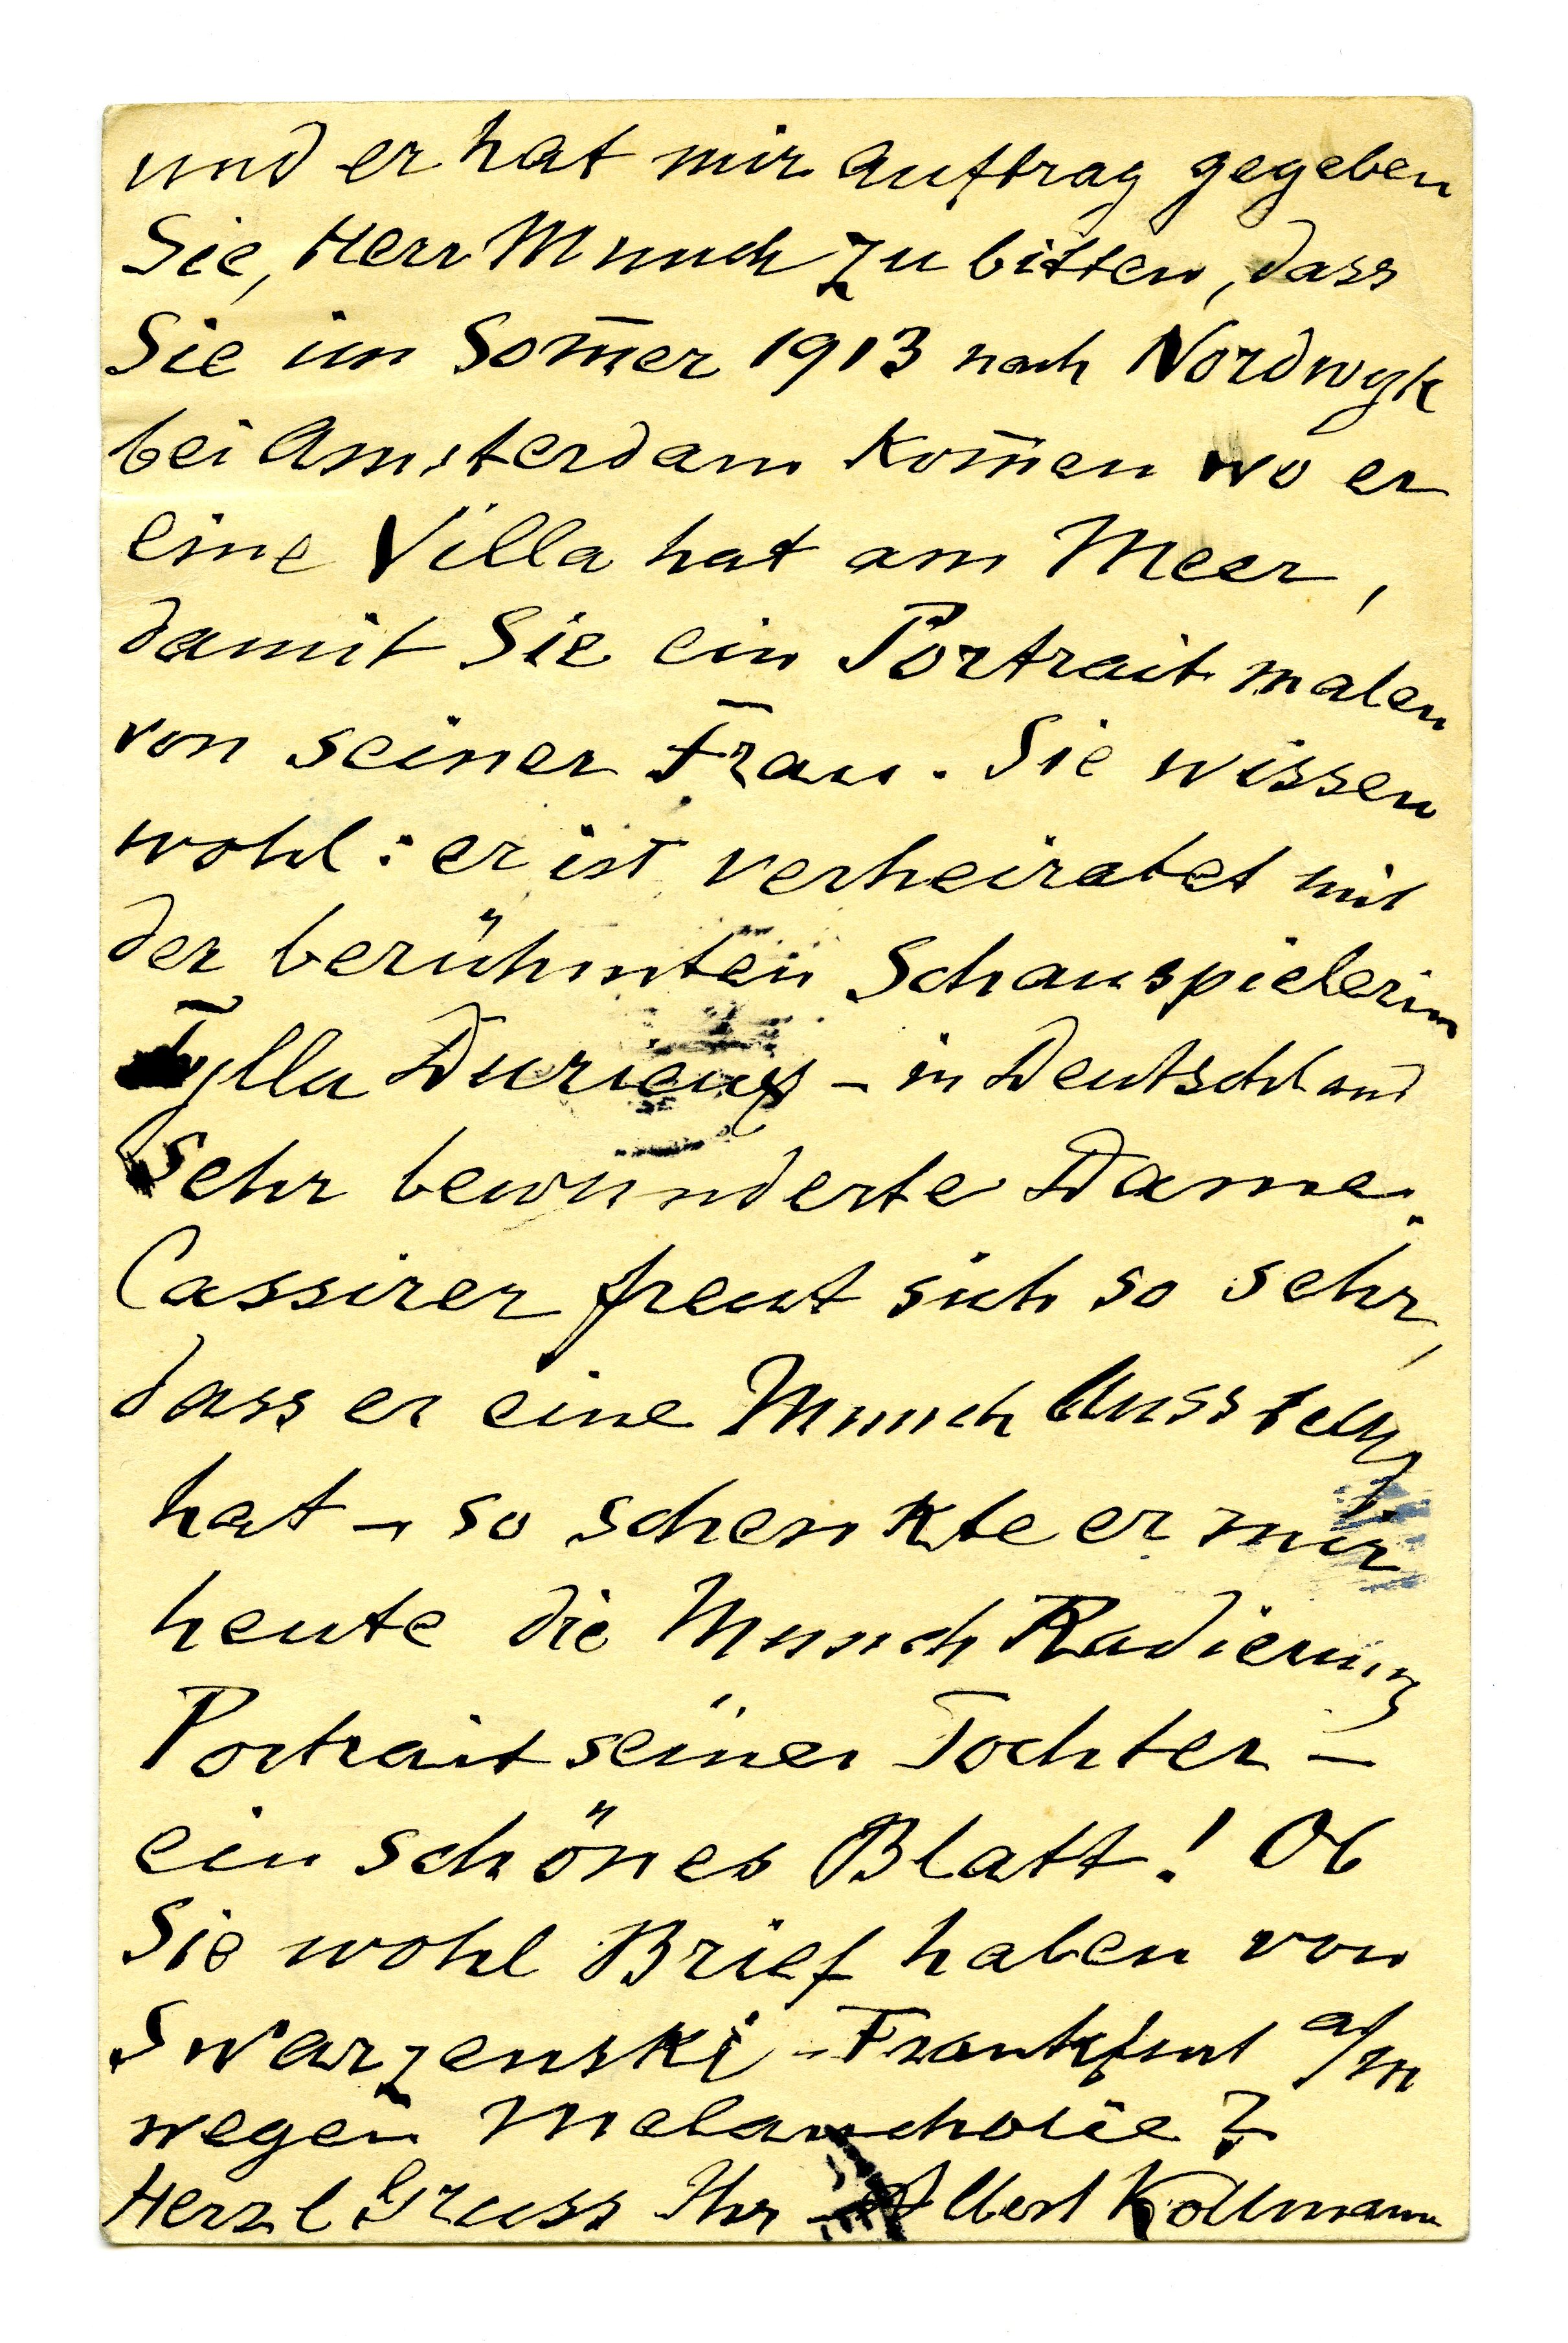 und er hat mir Auftrag gegeben
Sie, Herr Munch zu bitten, dass
Sie im Som̄er 1913 nach Nordwyk
bei Amsterdam kom̄en wo er
eine Villa hat am Meer,
damit Sie ein Portrait malen
von seiner Frau. Sie wissen
wohl: er ist verheiratet mit
der berühmten Schauspielerin
Tylla Durieux – in Deutschland
sehr bewunderte Dame.
Cassirer freut sich so sehr,
dass er eine Munch Ausstellg
hat – so schenkte er mir
heute die Munch Radierung
Portrait seiner Tochter –
ein schönes Blatt! Ob
Sie wohl Brief haben von
Swarzenski – Frankfurt a/m
wegen Melancholie?
Herzl Gruss Ihr Albert Kollmann